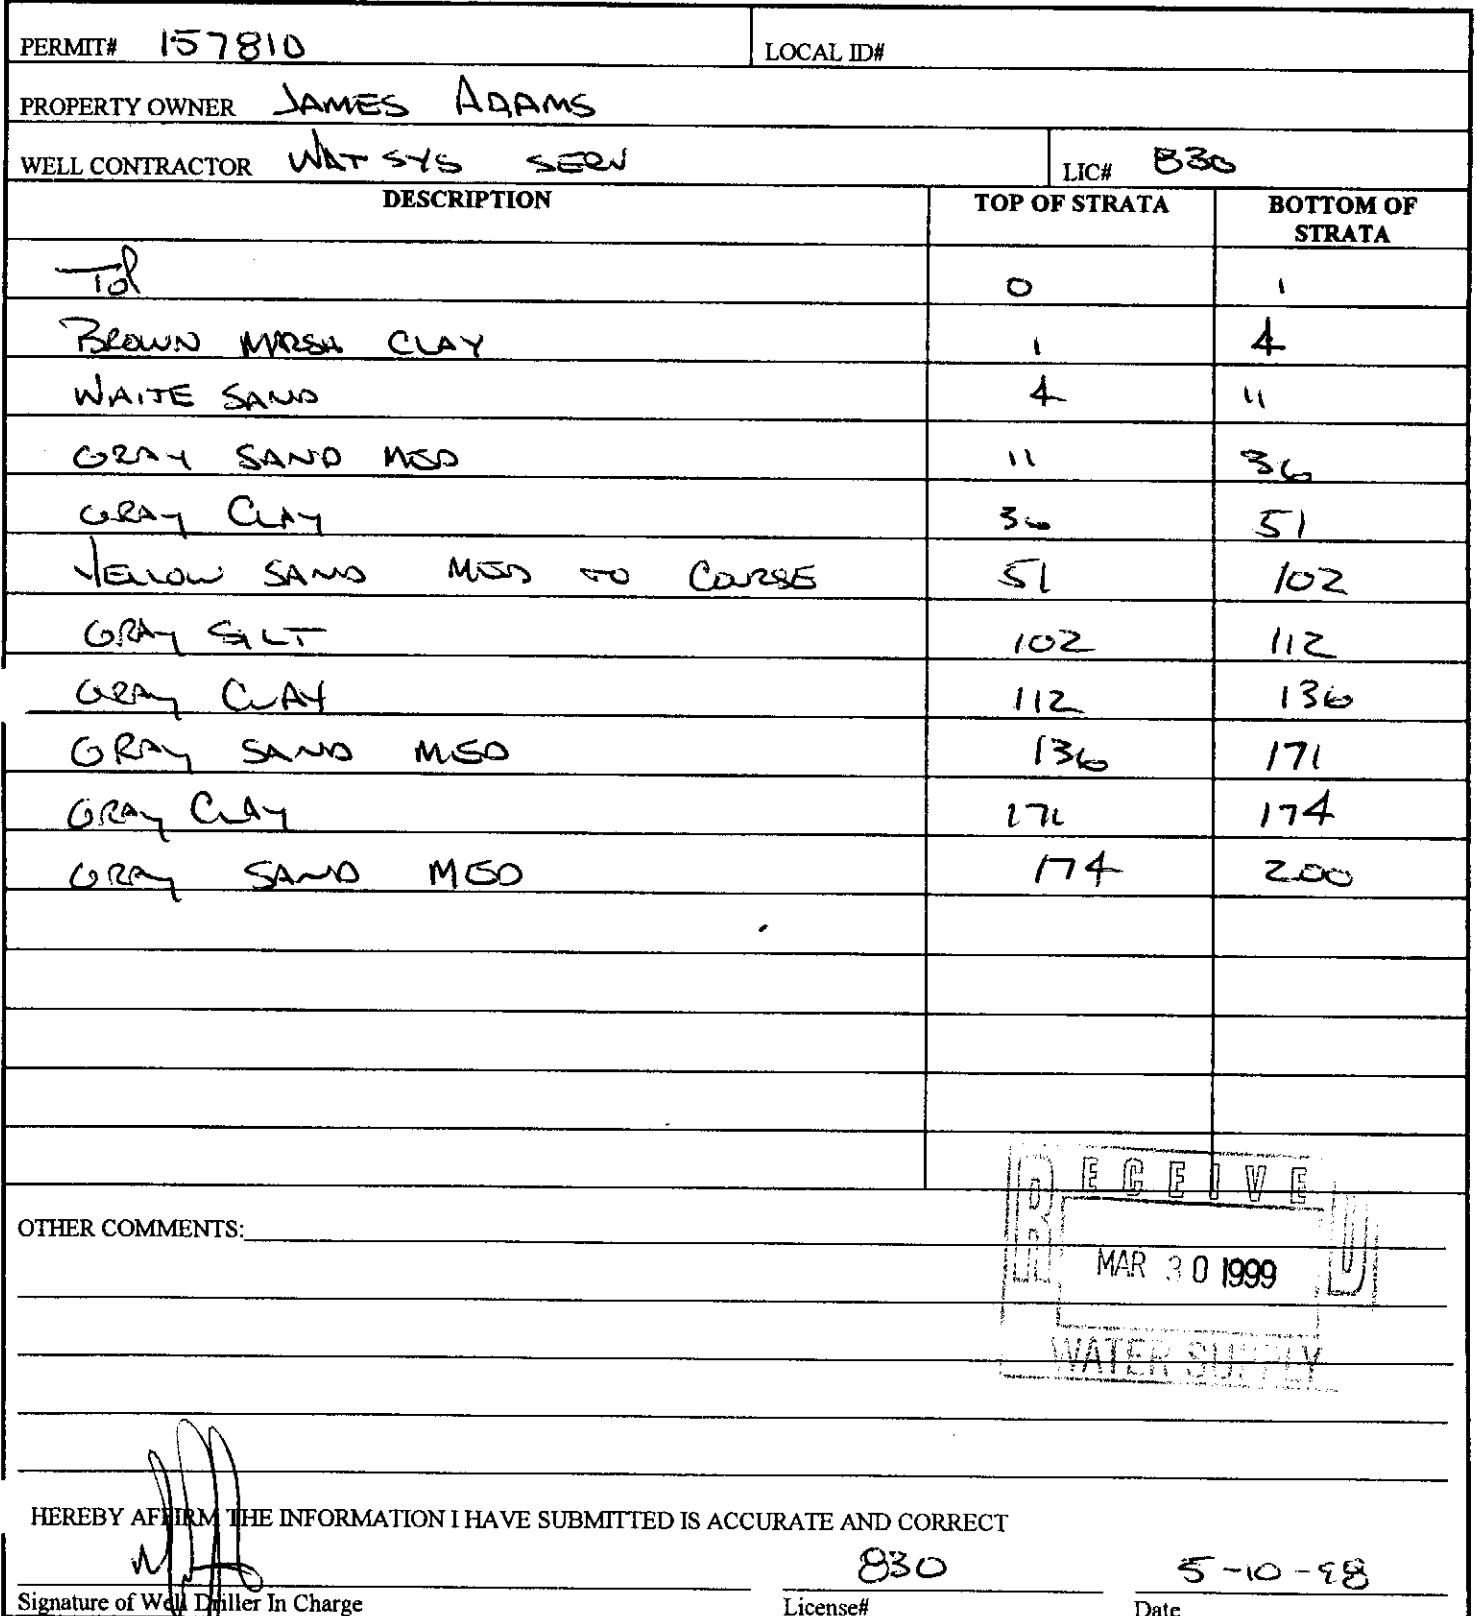 PERMIT# 157810 LOCAL ID#
PROPERTY OWNER JAMES ADAMS
WELL CONTRACTOR WAT SYS SERV LIC# 830
DESCRIPTION TOP OF STRATA BOTTOM OF STRATA
Top 0 1
BROWN MARSH CLAY 1 4
WHITE SAND 4 11
GRAY SAND MED 11 36
GRAY CLAY 36 51
YELLOW SAND MED TO COURSE 51 102
GRAY SILT 102 112
GRAY CLAY 112 136
GRAY SAND MED 136 171
GRAY CLAY 171 174
GRAY SAND MED 174 200
RECEIVED
OTHER COMMENTS:
MAR 30 1999
WATER SUPPLY
HEREBY AFFIRM THE INFORMATION I HAVE SUBMITTED IS ACCURATE AND CORRECT
830 5-10-98
Signature of Well Driller In Charge License# Date